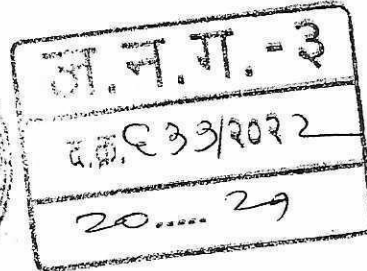 अ.न.ग.-३
द.क्र.६३३/२०२२
२०.....२९